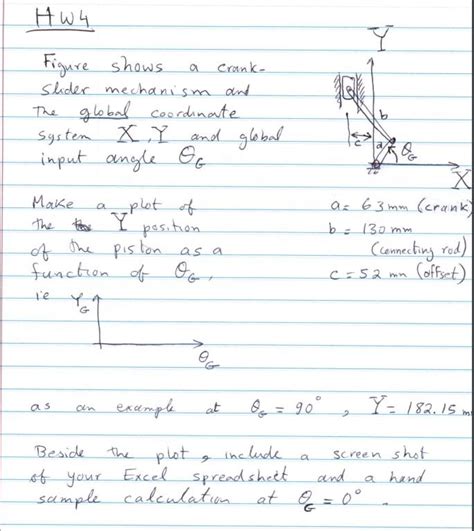 HW4
Y
Figure shows a crank-
slider mechanism and
the global coordinate
system X, Y and global
input angle θG
b
c
a
θG
X
Make a plot of
the Y position
of the piston as a
function of θG,
ie
a = 63 mm (crank)
b = 130 mm
(connecting rod)
c = 52 mm (offset)
YG
θG
as an example at θG = 90° , Y = 182.15 m
Beside the plot, include a screen shot
of your Excel spreadsheet and a hand
sample calculation at θG = 0° .